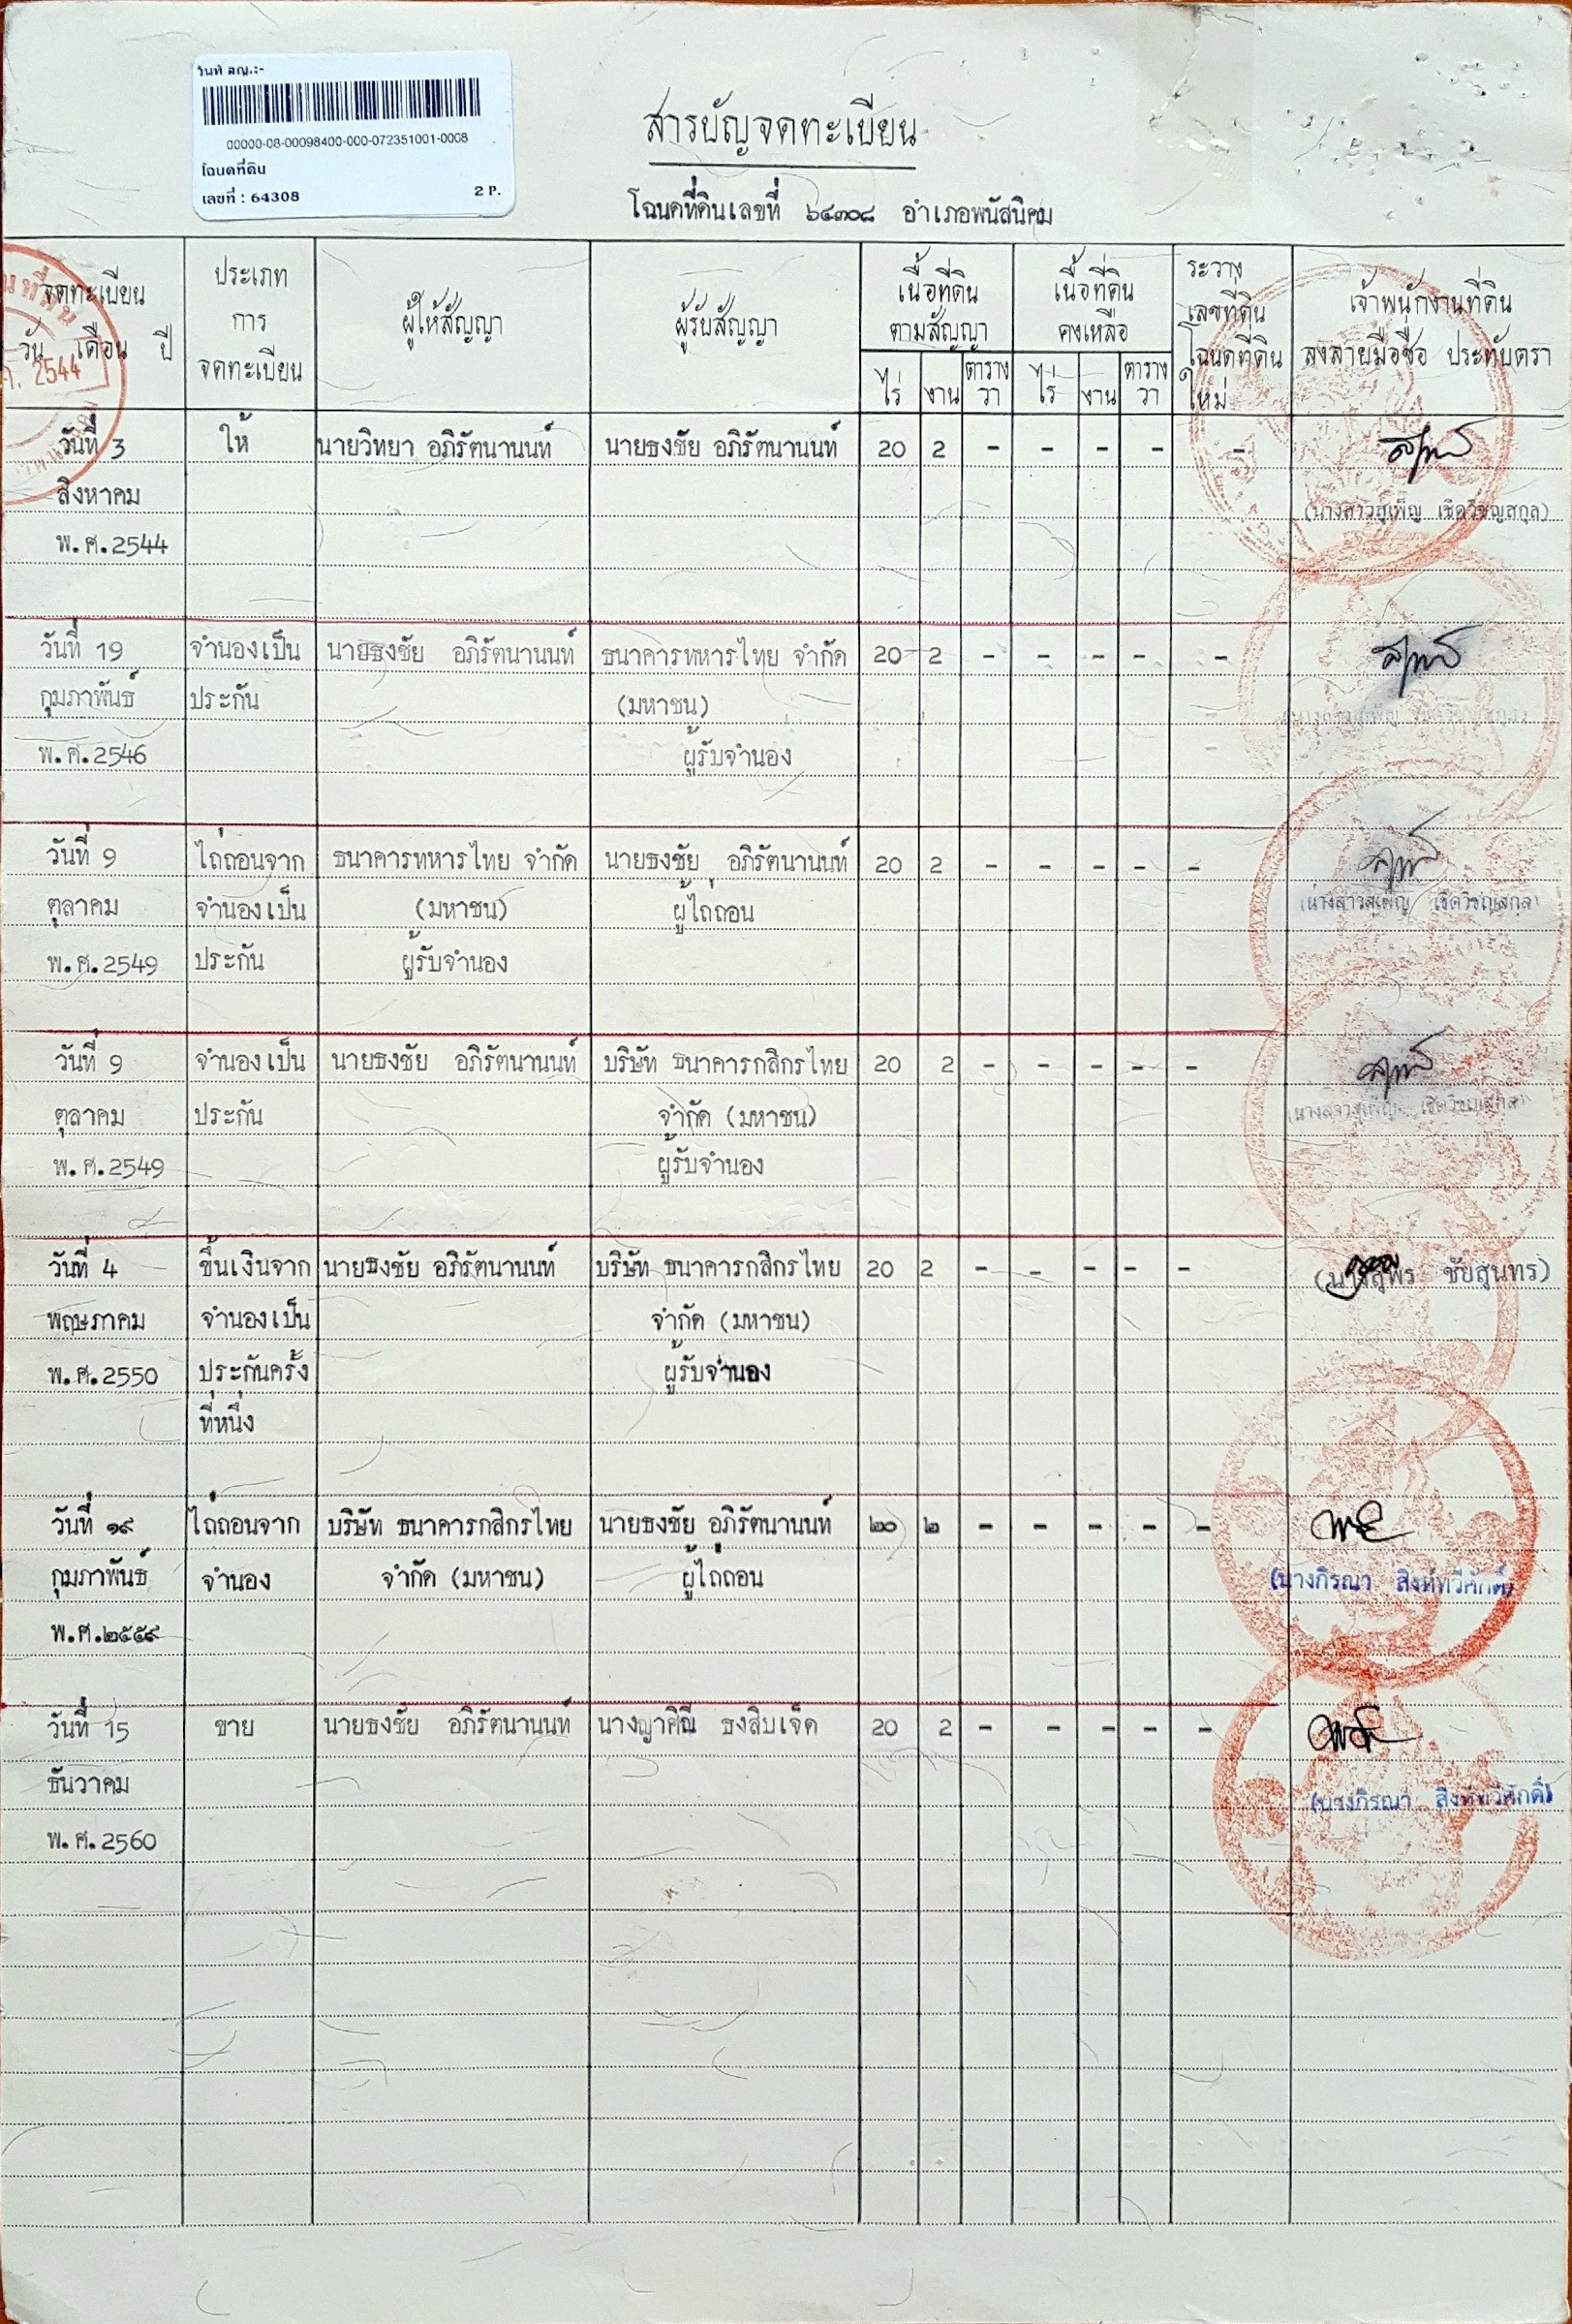 วันที่ สญ.:-
00000-08-00098400-000-072351001-0008
โฉนดที่ดิน
เลขที่ : 64308 2 P.
สารบัญจดทะเบียน
โฉนดที่ดินเลขที่ ๖๔๓๐๘ อำเภอพนัสนิคม
จดทะเบียน
วัน เดือน ปี
ประเภท
การ
จดทะเบียน
ผู้ให้สัญญา
ผู้รับสัญญา
เนื้อที่ดิน
ตามสัญญา
ไร่ งาน ตาราง
วา
เนื้อที่ดิน
คงเหลือ
ไร่ งาน ตาราง
วา
ระวาง
เลขที่ดิน
โฉนดที่ดิน
ใหม่
เจ้าพนักงานที่ดิน
ลงลายมือชื่อ ประทับตรา
2544
วันที่ 3 ให้ นายวิทยา อภิรัตนานนท์ นายธงชัย อภิรัตนานนท์ 20 2 - - - - -
สิงหาคม (นางสาวสุเพ็ญ เชิดวิชญสกุล)
พ.ศ.2544
วันที่ 19 จำนองเป็น นายธงชัย อภิรัตนานนท์ ธนาคารทหารไทย จำกัด 20 2 - - - - -
กุมภาพันธ์ ประกัน (มหาชน)
พ.ศ.2546 ผู้รับจำนอง
วันที่ 9 ไถ่ถอนจาก ธนาคารทหารไทย จำกัด นายธงชัย อภิรัตนานนท์ 20 2 - - - - -
ตุลาคม จำนองเป็น (มหาชน) ผู้ไถ่ถอน (นางสาวสุเพ็ญ เชิดวิชญสกุล)
พ.ศ.2549 ประกัน ผู้รับจำนอง
วันที่ 9 จำนองเป็น นายธงชัย อภิรัตนานนท์ บริษัท ธนาคารกสิกรไทย 20 2 - - - - -
ตุลาคม ประกัน จำกัด (มหาชน) (นางสาวสุเพ็ญ เชิดวิชญสกุล)
พ.ศ.2549 ผู้รับจำนอง
วันที่ 4 ขึ้นเงินจาก นายธงชัย อภิรัตนานนท์ บริษัท ธนาคารกสิกรไทย 20 2 - - - - - (นางสุพร ชัยสุนทร)
พฤษภาคม จำนองเป็น จำกัด (มหาชน)
พ.ศ.2550 ประกันครั้ง ผู้รับจำนอง
ที่หนึ่ง
วันที่ ๑๙ ไถ่ถอนจาก บริษัท ธนาคารกสิกรไทย นายธงชัย อภิรัตนานนท์ ๒๐ ๒ - - - - -
กุมภาพันธ์ จำนอง จำกัด (มหาชน) ผู้ไถ่ถอน (นางภิรณา สิงห์ทวีศักดิ์)
พ.ศ.๒๕๕๙
วันที่ 15 ขาย นายธงชัย อภิรัตนานนท์ นางญาศิณี ธงสิบเจ็ด 20 2 - - - - -
ธันวาคม (นางภิรณา สิงห์ทวีศักดิ์)
พ.ศ.2560